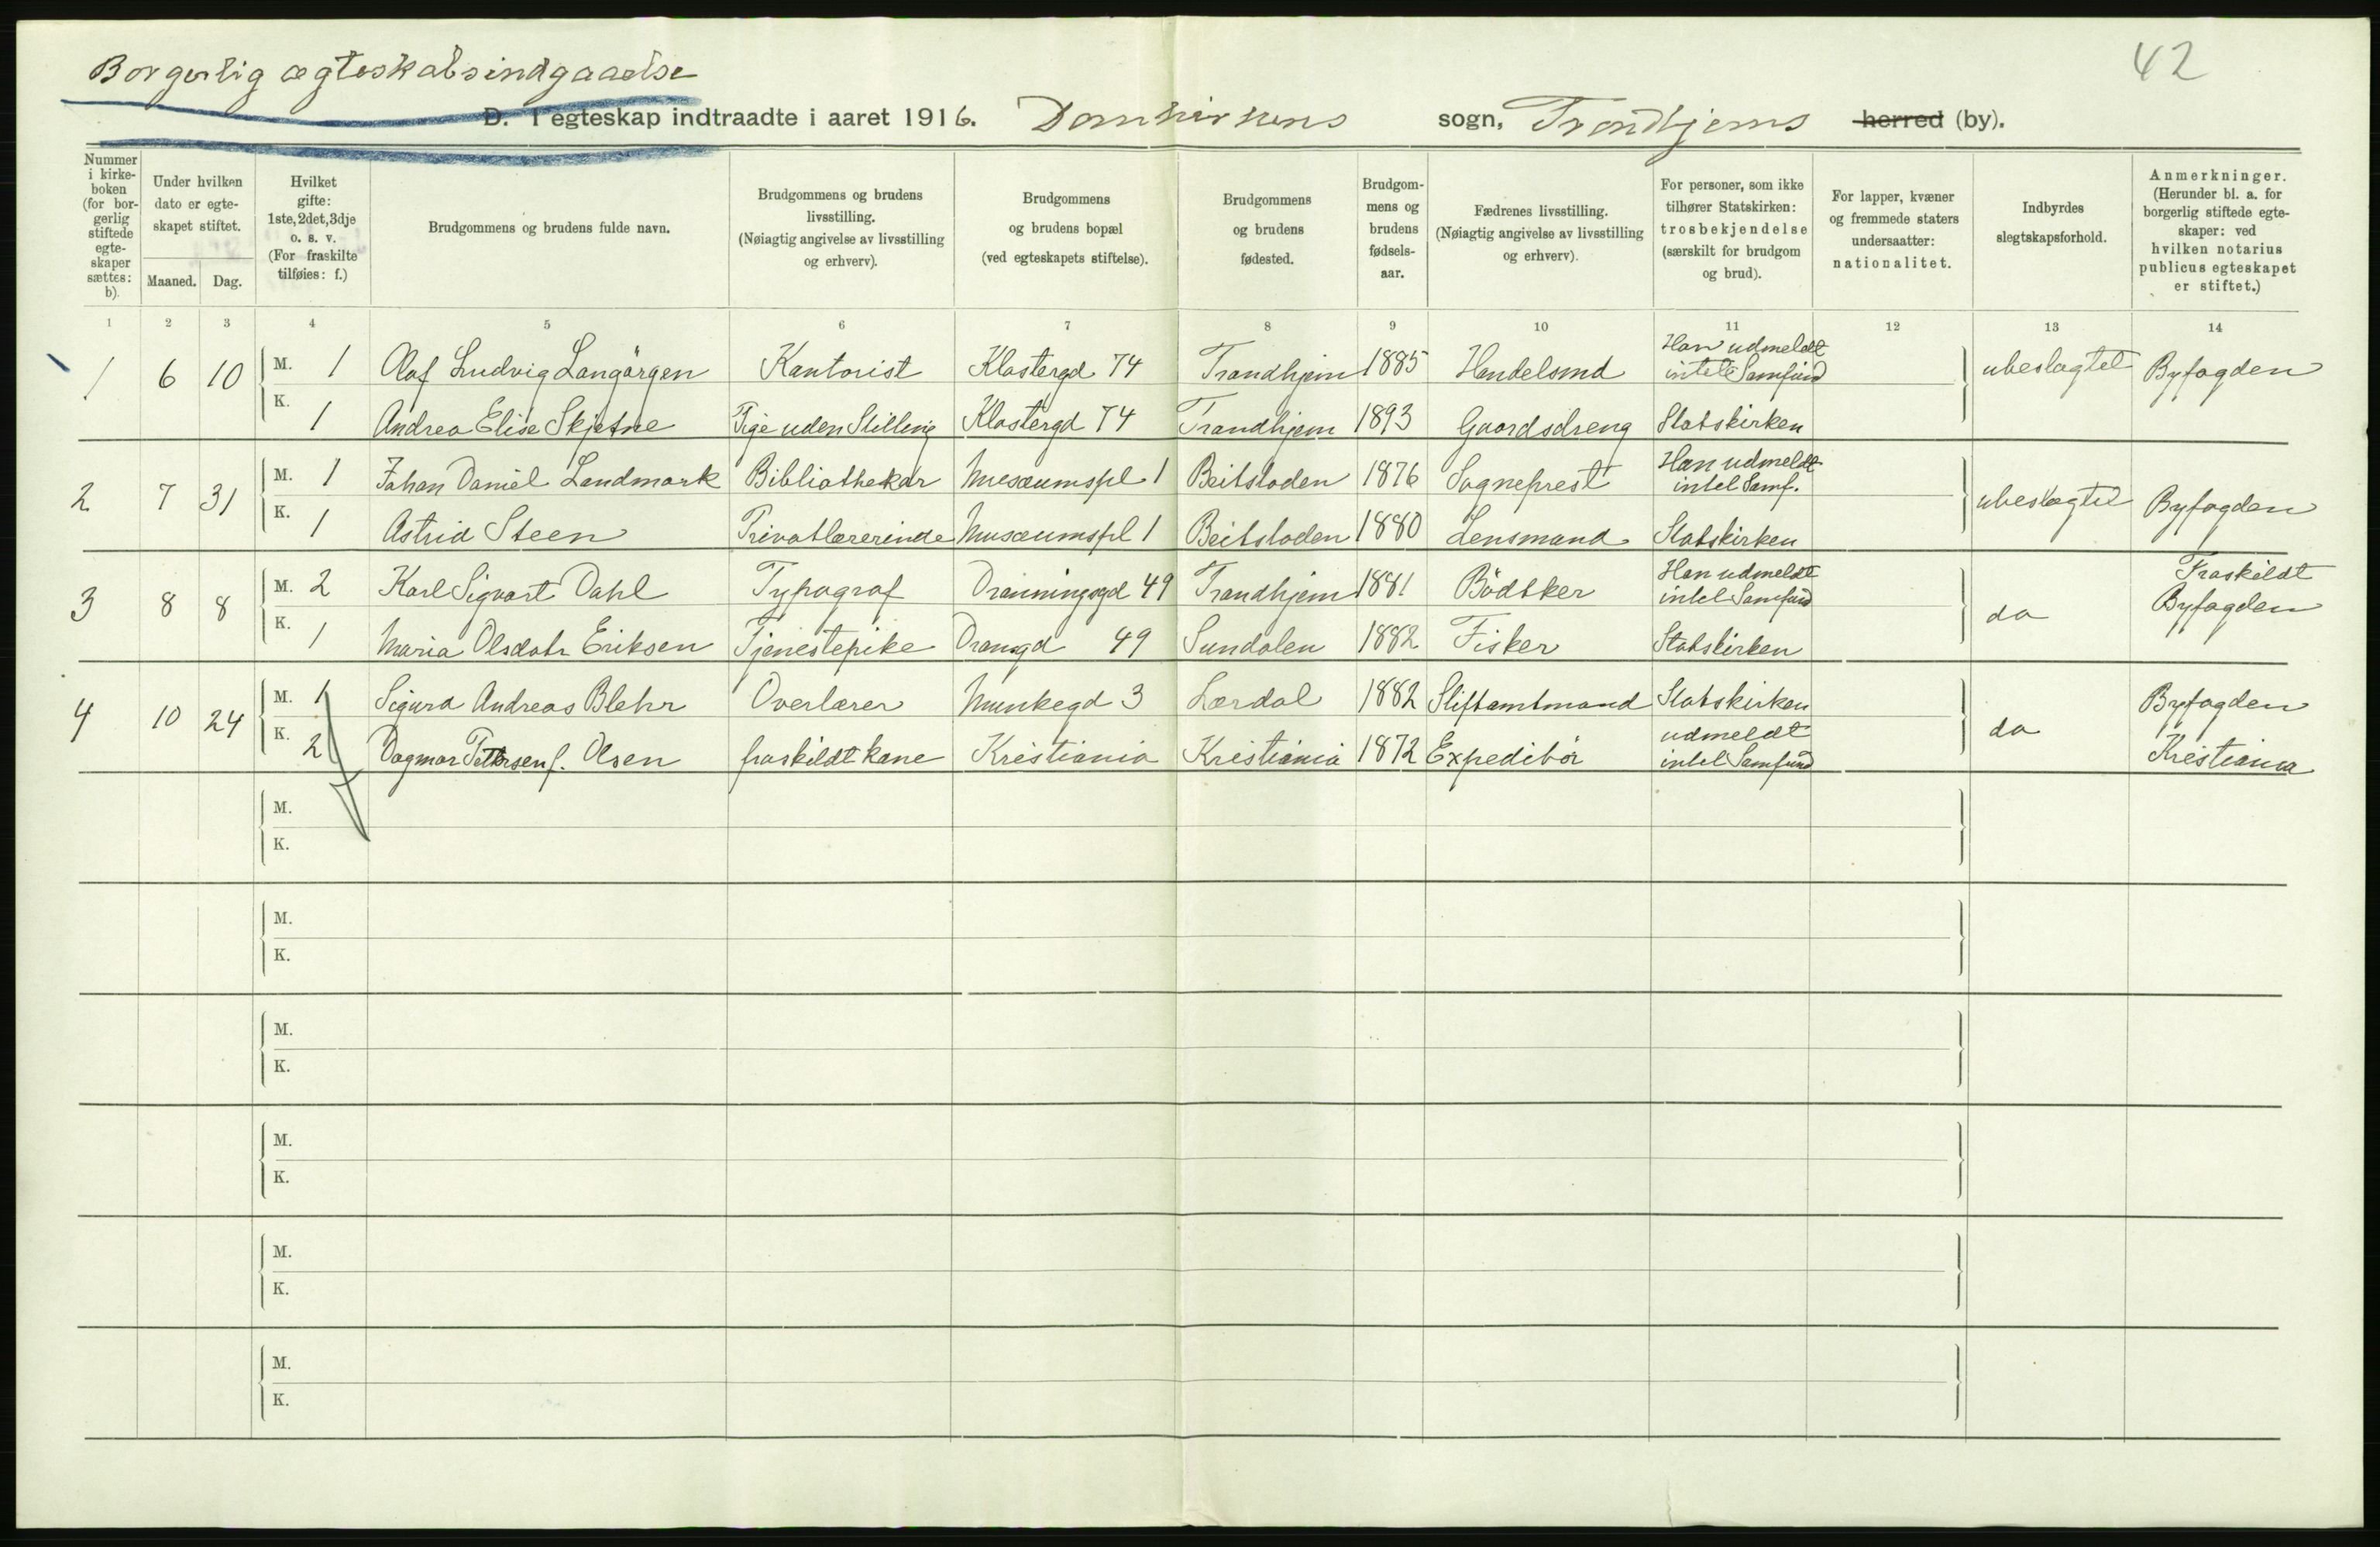 42
Borgerlig ægteskabsindgaaelse
D. I egteskap indtraadte i aaret 1916. Domkirkens sogn, Trondhjems herred (by).
Nummer i kirkeboken (for borgerlig stiftede egteskaper sættes: b).
Under hvilken dato er egteskapet stiftet.
Maaned. Dag.
Hvilket gifte: 1ste, 2det, 3dje o. s. v. (For fraskilte tilføies: f.)
Brudgommens og brudens fulde navn.
Brudgommens og brudens livsstilling. (Nøiagtig angivelse av livsstilling og erhverv).
Brudgommens og brudens bopæl (ved egteskapets stiftelse).
Brudgommens og brudens fødested.
Brudgommens og brudens fødselsaar.
Fædrenes livsstilling. (Nøiagtig angivelse av livsstilling og erhverv).
For personer, som ikke tilhører Statskirken: trosbekjendelse (særskilt for brudgom og brud).
For lapper, kvæner og fremmede staters undersaatter: nationalitet.
Indbyrdes slegtskapsforhold.
Anmerkninger. (Herunder bl. a. for borgerlig stiftede egteskaper: ved hvilken notarius publicus egteskapet er stiftet.)
1 2 3 4 5 6 7 8 9 10 11 12 13 14
1 6 10 M. 1 Olaf Ludvig Langörgen Kontorist Klostergd 74 Trondhjem 1885 Handelsmd Han udmeldt intet Samfund ubeslægtet Byfogden
K. 1 Andrea Elise Skjetne Pige uden Stilling Klostergd 74 Trondhjem 1893 Gaardsdreng Statskirken
2 7 31 M. 1 Johan Daniel Landmark Bibliothekar Museumspl 1 Beitstaden 1876 Sogneprest Han udmeldt intet Samf. ubeslægtet Byfogden
K. 1 Astrid Steen Privatlærerinde Musæumspl 1 Beitstaden 1880 Lensmand Statskirken
3 8 8 M. 2 Karl Sigvart Dahl Typograf Dronningsgd 49 Trondhjem 1881 Bödtker Han udmeldt intet Samfund do Fraskildt Byfogden
K. 1 Maria Olsdatr Eriksen Tjenestepike Drongd 49 Sundalen 1882 Fisker Statskirken
4 10 24 M. 1 Sigurd Andreas Blehr Overlærer Munkegd 3 Lærdal 1882 Stiftamtmand Statskirken do Byfogden
K. 2 Dagmar Pettersen f. Olsen fraskildt kone Kristiania Kristiania 1872 Expeditör udmeldt intet Samfund Kristiania
M.
K.
M.
K.
M.
K.
M.
K.
M.
K.
M.
K.